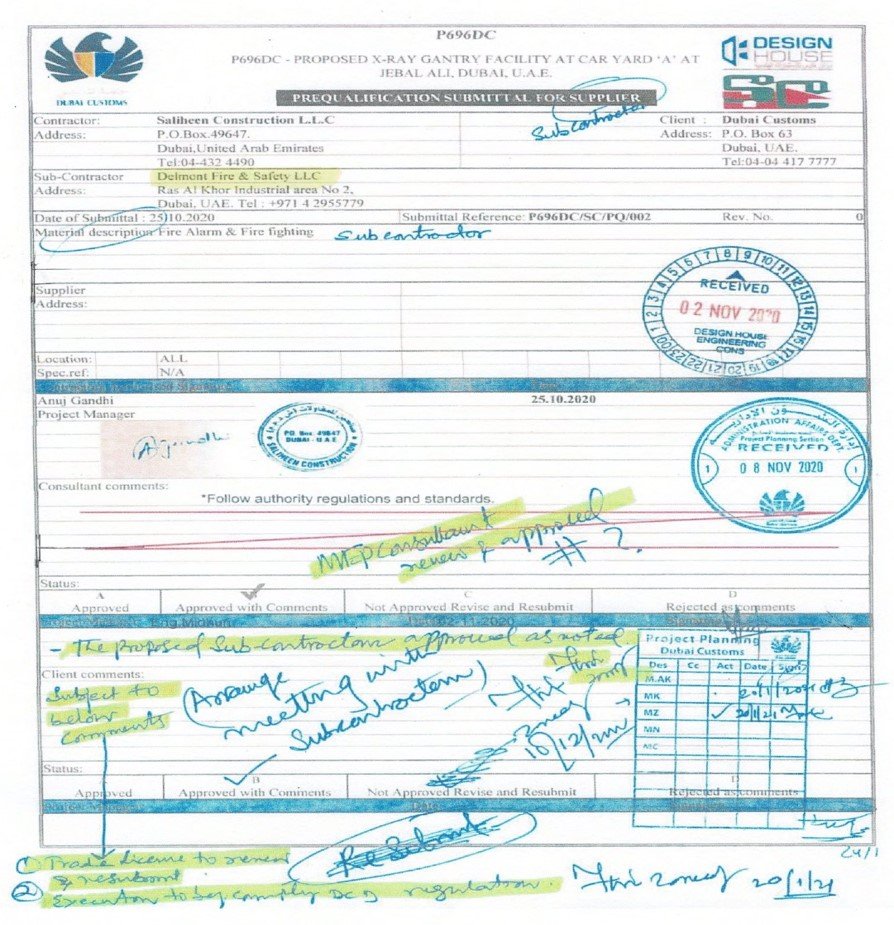 P696DC
P696DC - PROPOSED X-RAY GANTRY FACILITY AT CAR YARD 'A' AT
JEBAL ALI, DUBAI, U.A.E.
DUBAI CUSTOMS
DESIGN
HOUSE
PREQUALIFICATION SUBMITTAL FOR SUPPLIER
Subcontractor
Contractor: Saliheen Construction L.L.C Client : Dubai Customs
Address: P.O.Box.49647. Address: P.O. Box 63
Dubai,United Arab Emirates Dubai, UAE.
Tel:04-432 4490 Tel:04-04 417 7777
Sub-Contractor Delmont Fire & Safety LLC
Address: Ras Al Khor Industrial area No 2,
Dubai, UAE. Tel : +971 4 2955779
Date of Submittal : 25|10.2020 Submittal Reference: P696DC/SC/PQ/002 Rev. No. 0
Material description Fire Alarm & Fire fighting Subcontractor
Supplier
Address:
RECEIVED
02 NOV 2020
DESIGN HOUSE
ENGINEERING
CONS
Location: ALL
Spec.ref: N/A
Anuj Gandhi 25.10.2020
Project Manager
P.O. Box 49647
DUBAI - U.A.E
SALIHEEN CONSTRUCTION
ADMINISTRATION AFFAIRS DEPT.
Project Planning Section
RECEIVED
08 NOV 2020
Consultant comments:
*Follow authority regulations and standards.
MEP Consultant
review & approved
# ?
Status:
A B C D
Approved Approved with Comments Not Approved Revise and Resubmit Rejected as comments
- The proposed Sub-contractor approved as noted.
Client comments:
Subject to
below
comments
(Arrange
meeting with
Subcontractor)
18/12/2020
Project Planning
Dubai Customs
Des Cc Act Date Sign
M.AK
MK 20/1/2021
MZ ✓ 20/1/21
MN
MC
Status:
B D
Approved Approved with Comments Not Approved Revise and Resubmit Rejected as comments
Resubmit
24/1
① Trade License to renew
& resubmit
② Execution to be comply DCD regulation.
20/1/21